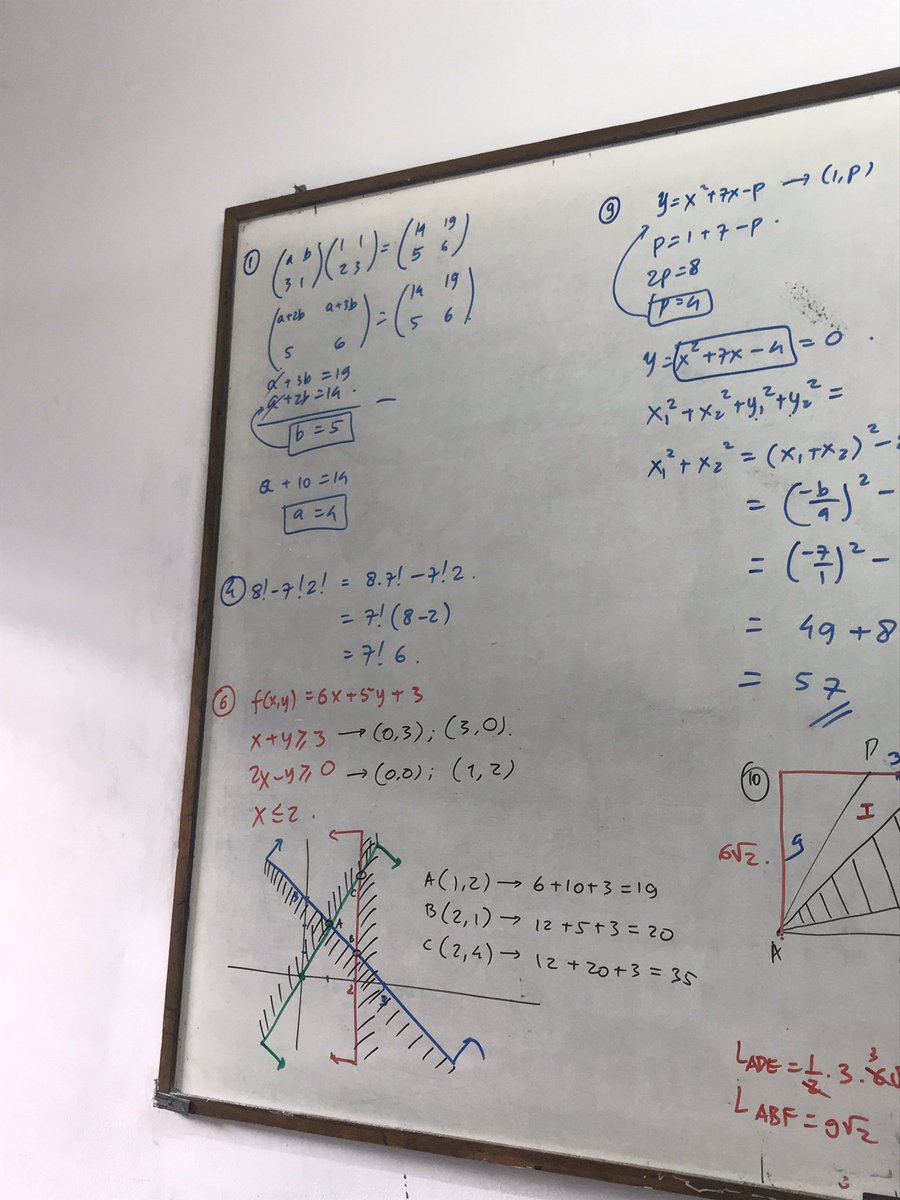 ① (a b
3 1) (1 1
2 3) = (14 19
5 6)
(a+2b a+3b
5 6) = (14 19
5 6)
a + 3b = 19
a + 2b = 14 . −
b = 5
a + 10 = 14
a = 4
④ 8! − 7! 2! = 8. 7! − 7! 2 .
= 7! (8−2)
= 7! 6 .
⑥ f(x,y) = 6x + 5y + 3
x + y ≥ 3 → (0,3) ; (3,0).
2x − y ≥ 0 → (0,0) ; (1,2)
x ≤ 2 .
C
3
A
B
1
2
3
A (1,2) → 6 + 10 + 3 = 19
B (2,1) → 12 + 5 + 3 = 20
C (2,4) → 12 + 20 + 3 = 35
⑨ y = x² + 7x − p → (1,p)
p = 1 + 7 − p .
2p = 8
p = 4
y = x² + 7x − 4 = 0 .
x₁² + x₂² + y₁² + y₂² =
x₁² + x₂² = (x₁ + x₂)² −
= (−b/a)² −
= (−7/1)² −
= 49 + 8
= 57
⑩ D 3
I
6√2 . 9
A
L ADE = 1/2 . 3 . 6√ 3
L ABF = 9√2